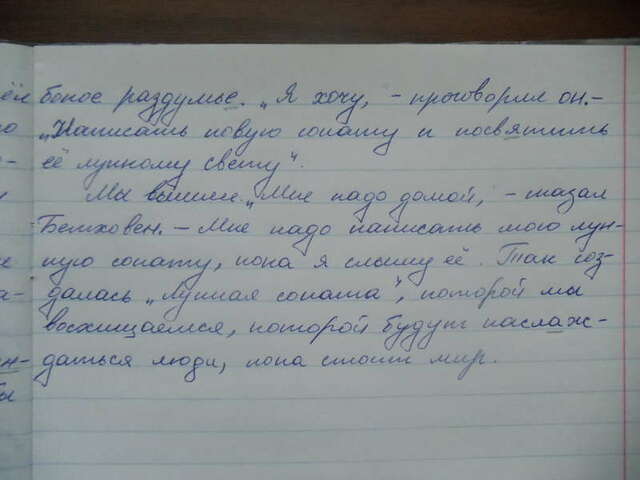 бокое раздумье. „Я хочу, – проговорил он.–
„Написать новую сонату и посвятить
её лунному свету".
Мы вышли. „Мне надо домой, – сказал
Бетховен. – Мне надо написать мою лун-
ную сонату, пока я слышу её. Так соз-
далась „Лунная соната", которой мы
восхищаемся, которой будут наслаж-
даться люди, пока стоит мир.